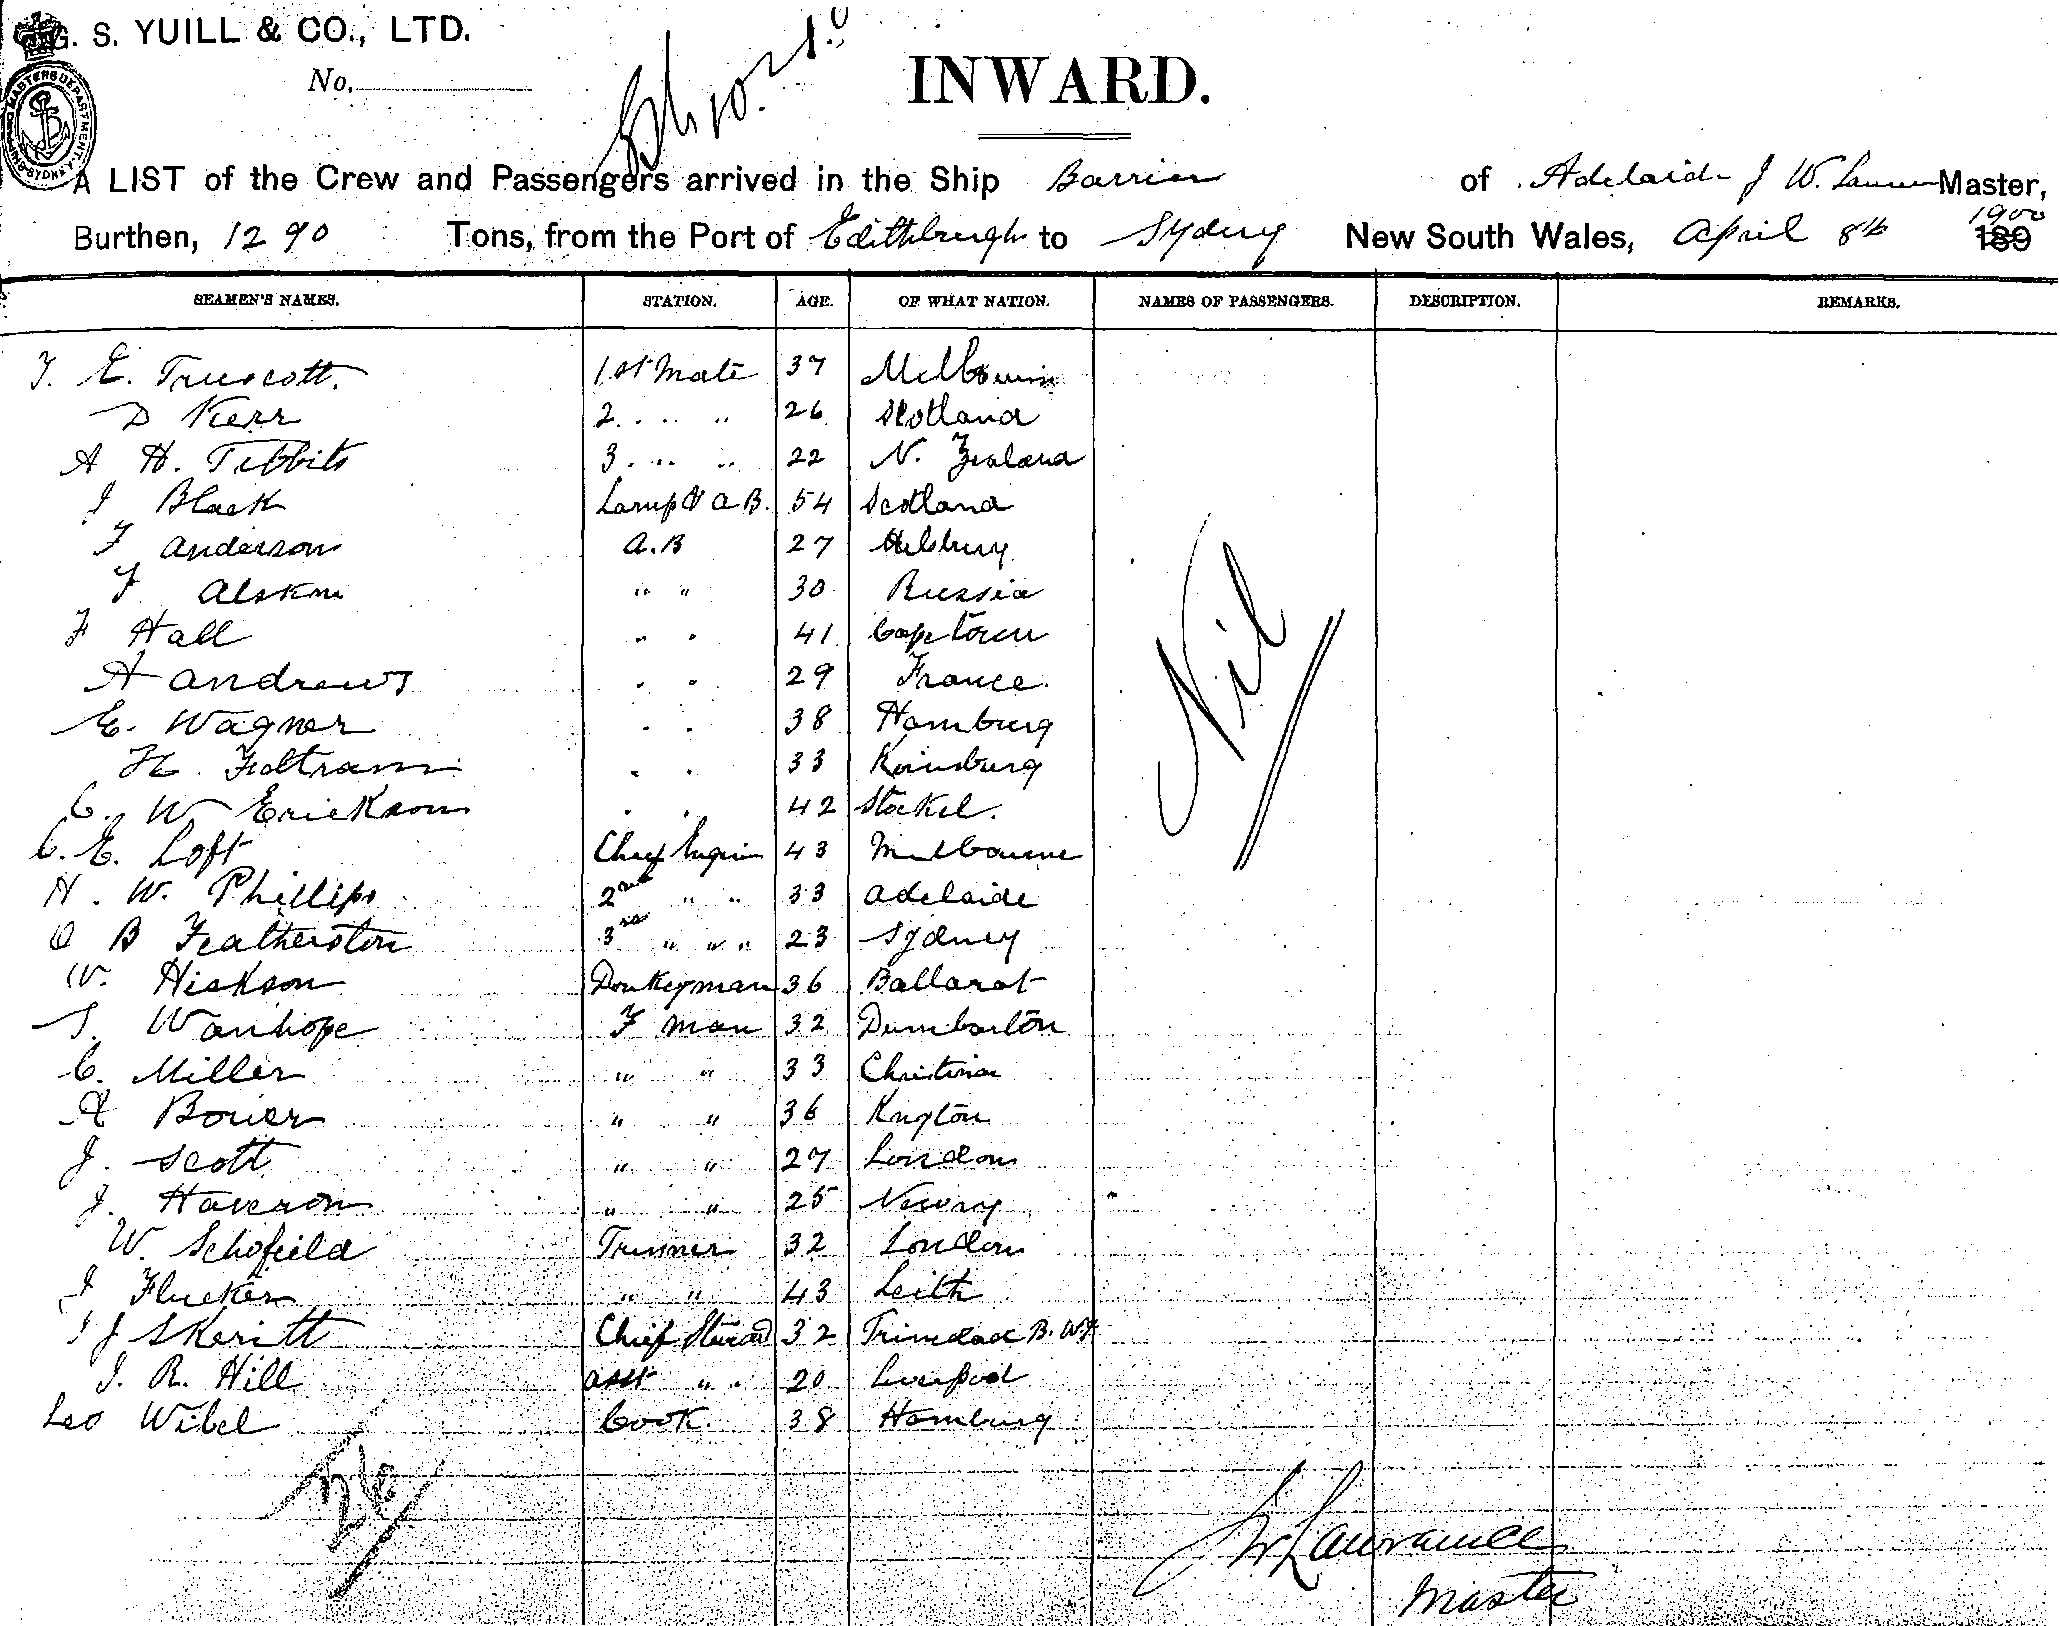 G. S. YUILL & CO., LTD.
No.
INWARD.
A LIST of the Crew and Passengers arrived in the Ship Barrier of Adelaide J W. Master,
Burthen, 1290 Tons, from the Port of Edithburgh to Sydney New South Wales, April 8th 1900 189
SEAMEN'S NAMES. STATION. AGE. OF WHAT NATION. NAMES OF PASSENGERS. DESCRIPTION. REMARKS.
T. E. Truscott. 1st Mate 37 Melbourne
D Kerr 2 .. .. 26 Scotland
A H. Tibbits 3 .. .. 22 N. Zealand
J Black Lamps & A.B. 54 Scotland
F Anderson A.B 27
F 30 Russia
F Hall " " 41 Capetown
A Andrews " " 29 France.
E. Wagner " " 38 Hamburg
H. " " 33
C. W Erickson " " 42
C. E. Loft Chief Engin 43 Melbourne
H. W. Phillips 2nd " " 33 Adelaide
O B Featherston 3rd " " " 23 Sydney
W. Hickson Donkeyman 36 Ballarat
S. Wanhope F man 32 Dumbarton
C. Miller " " 33
A " " 36
J. Scott " " 27 London
J. Haveron " " 25 Newry
W. Schofield Trimmer 32 London
J Flucker " " 43 Leith
J J Skeritt Chief Steward 32 Trinidad B. W. I
J. R. Hill asst " " 20 Liverpool
Leo Wibel Cook. 38 Hamburg
Nil
26
J W Lawrance
Master